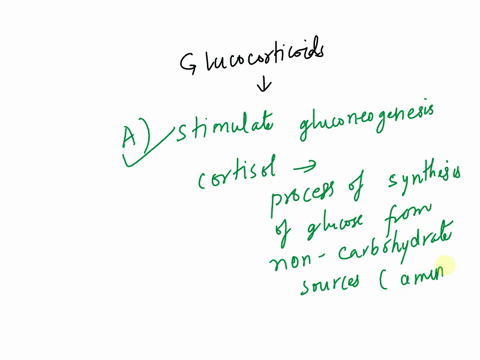 Glucocorticoids
↓
A) stimulate gluconeogenesis
cortisol →
process of synthesis
of glucose from
non-carbohydrate
sources (amin